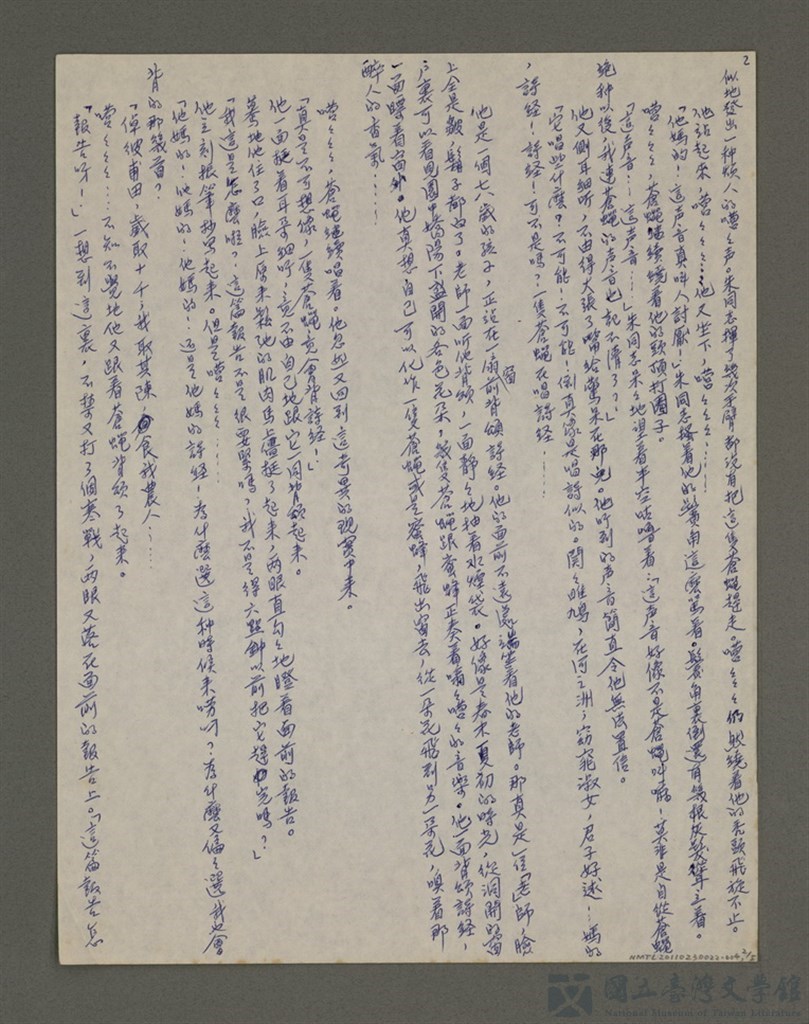 2
似地發出一种煩人的嗡々声。朱同志揮了幾次手臂都沒有把這隻蒼蠅趕走。嗡々々仍然繞着他的禿頭飛旋不止。
他站起來,嗡々々……他又坐下,嗡々々……
「他媽的!這声音真叫人討厭!」朱同志搔着他的鬢角這麼罵着。鬢角裏倒還有幾根灰髮聳立着。
嗡々々々,蒼蠅継續繞着他的頭頂打圈子。
「這声音…這声音…」朱同志呆々地望着半空咕嚕着:「這声音好像不是蒼蠅叫嘛!莫非是自從蒼蠅
絕种以後,我連蒼蠅的声音也記不清了?」
他又側耳細听,不由得大張了嘴給驚呆在那兒。他听到的声音簡直令他無法置信。
「它唱些什麼?不可能!不可能!倒真像是唱詩似的。関々雎鳩,在河之洲;窈窕淑女,君子好逑!…媽的
,詩経!詩経!可不是嗎?一隻蒼蠅在唱詩経!……
他是一個七八歲的孩子,正站在一扇窗前背頌詩経。他的面前不遠處端坐着他的老師。那真是一位「老」師,臉
上全是皺,鬍子都白了。老師一面听他背頌,一面靜々地抽着水煙袋。好像是春末夏初的時光,從洞開的窗
户裏可以看見園中嬌陽下盛開的各色花朵,幾隻蒼蠅跟蜜蜂正奏着嗡々嗡々的音樂。他一面背頌詩経,
一面瞟着窗外。他真想自己可以化作一隻蒼蠅或是蜜蜂,飛出窗去,從一朵花飛到另一朵花,嗅着那
醉人的香氣……
嗡々々,蒼蠅継續唱着。他忽然又回到這奇異的現實中來。
「真是不可想像,一隻蒼蠅竟會背詩経!」
他一面掩着耳朵細听,竟不由自己地跟它一同背頌起來。
驀地他住了口,臉上原來鬆弛的肌肉馬上僵挺了起來,兩眼直勾々地瞪着面前的報告。
「我這是怎麼啦?這篇報告不是很要緊嗎?我不是得六點鐘以前把它趕完嗎?」
他立刻振筆抄寫起來。但是嗡々々々……
「他媽的!他媽的!他媽的!還是他媽的詩経!為什麼選這种時候來唠叨?為什麼又偏々選我也會
背的那幾首?
「倬彼甫田,歲取十千;我取其陳,食我農人……
嗡々々々…不知不覺地他又跟着蒼蠅背頌了起來。
「報告呀!」一想到這裏,不禁又打了個寒戰,兩眼又落在面前的報告上。「這篇報告怎
NMTL20110230022-004 2/5
國立臺灣文學館
National Museum of Taiwan Literature